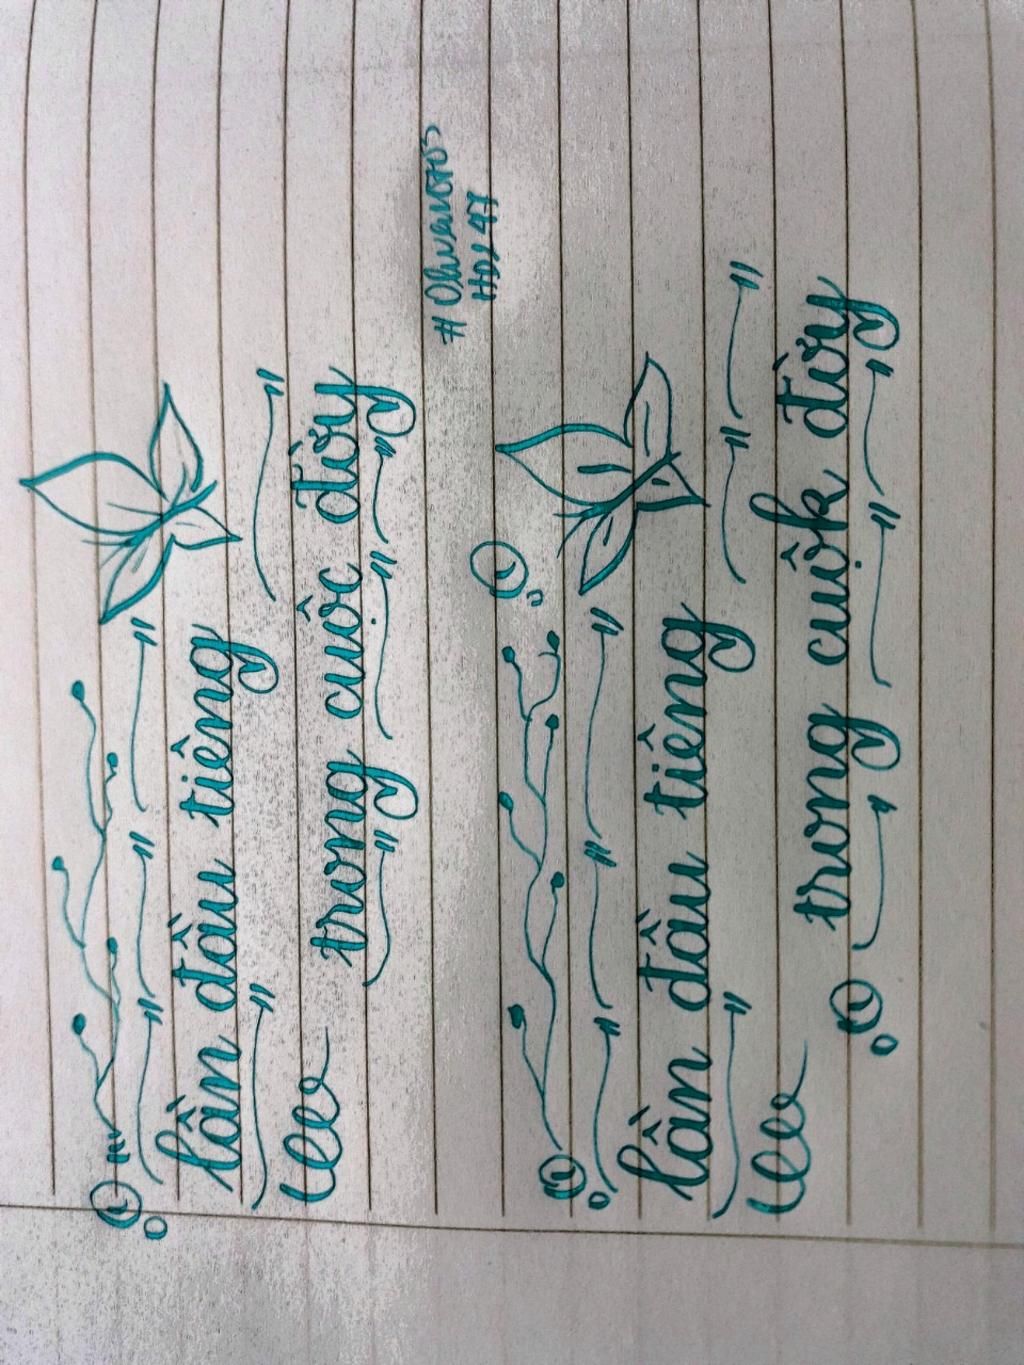 lần đầu tiêng
trong cuộc đờy
HDL 47
lần đầu tiêng
trong cuộk đờy